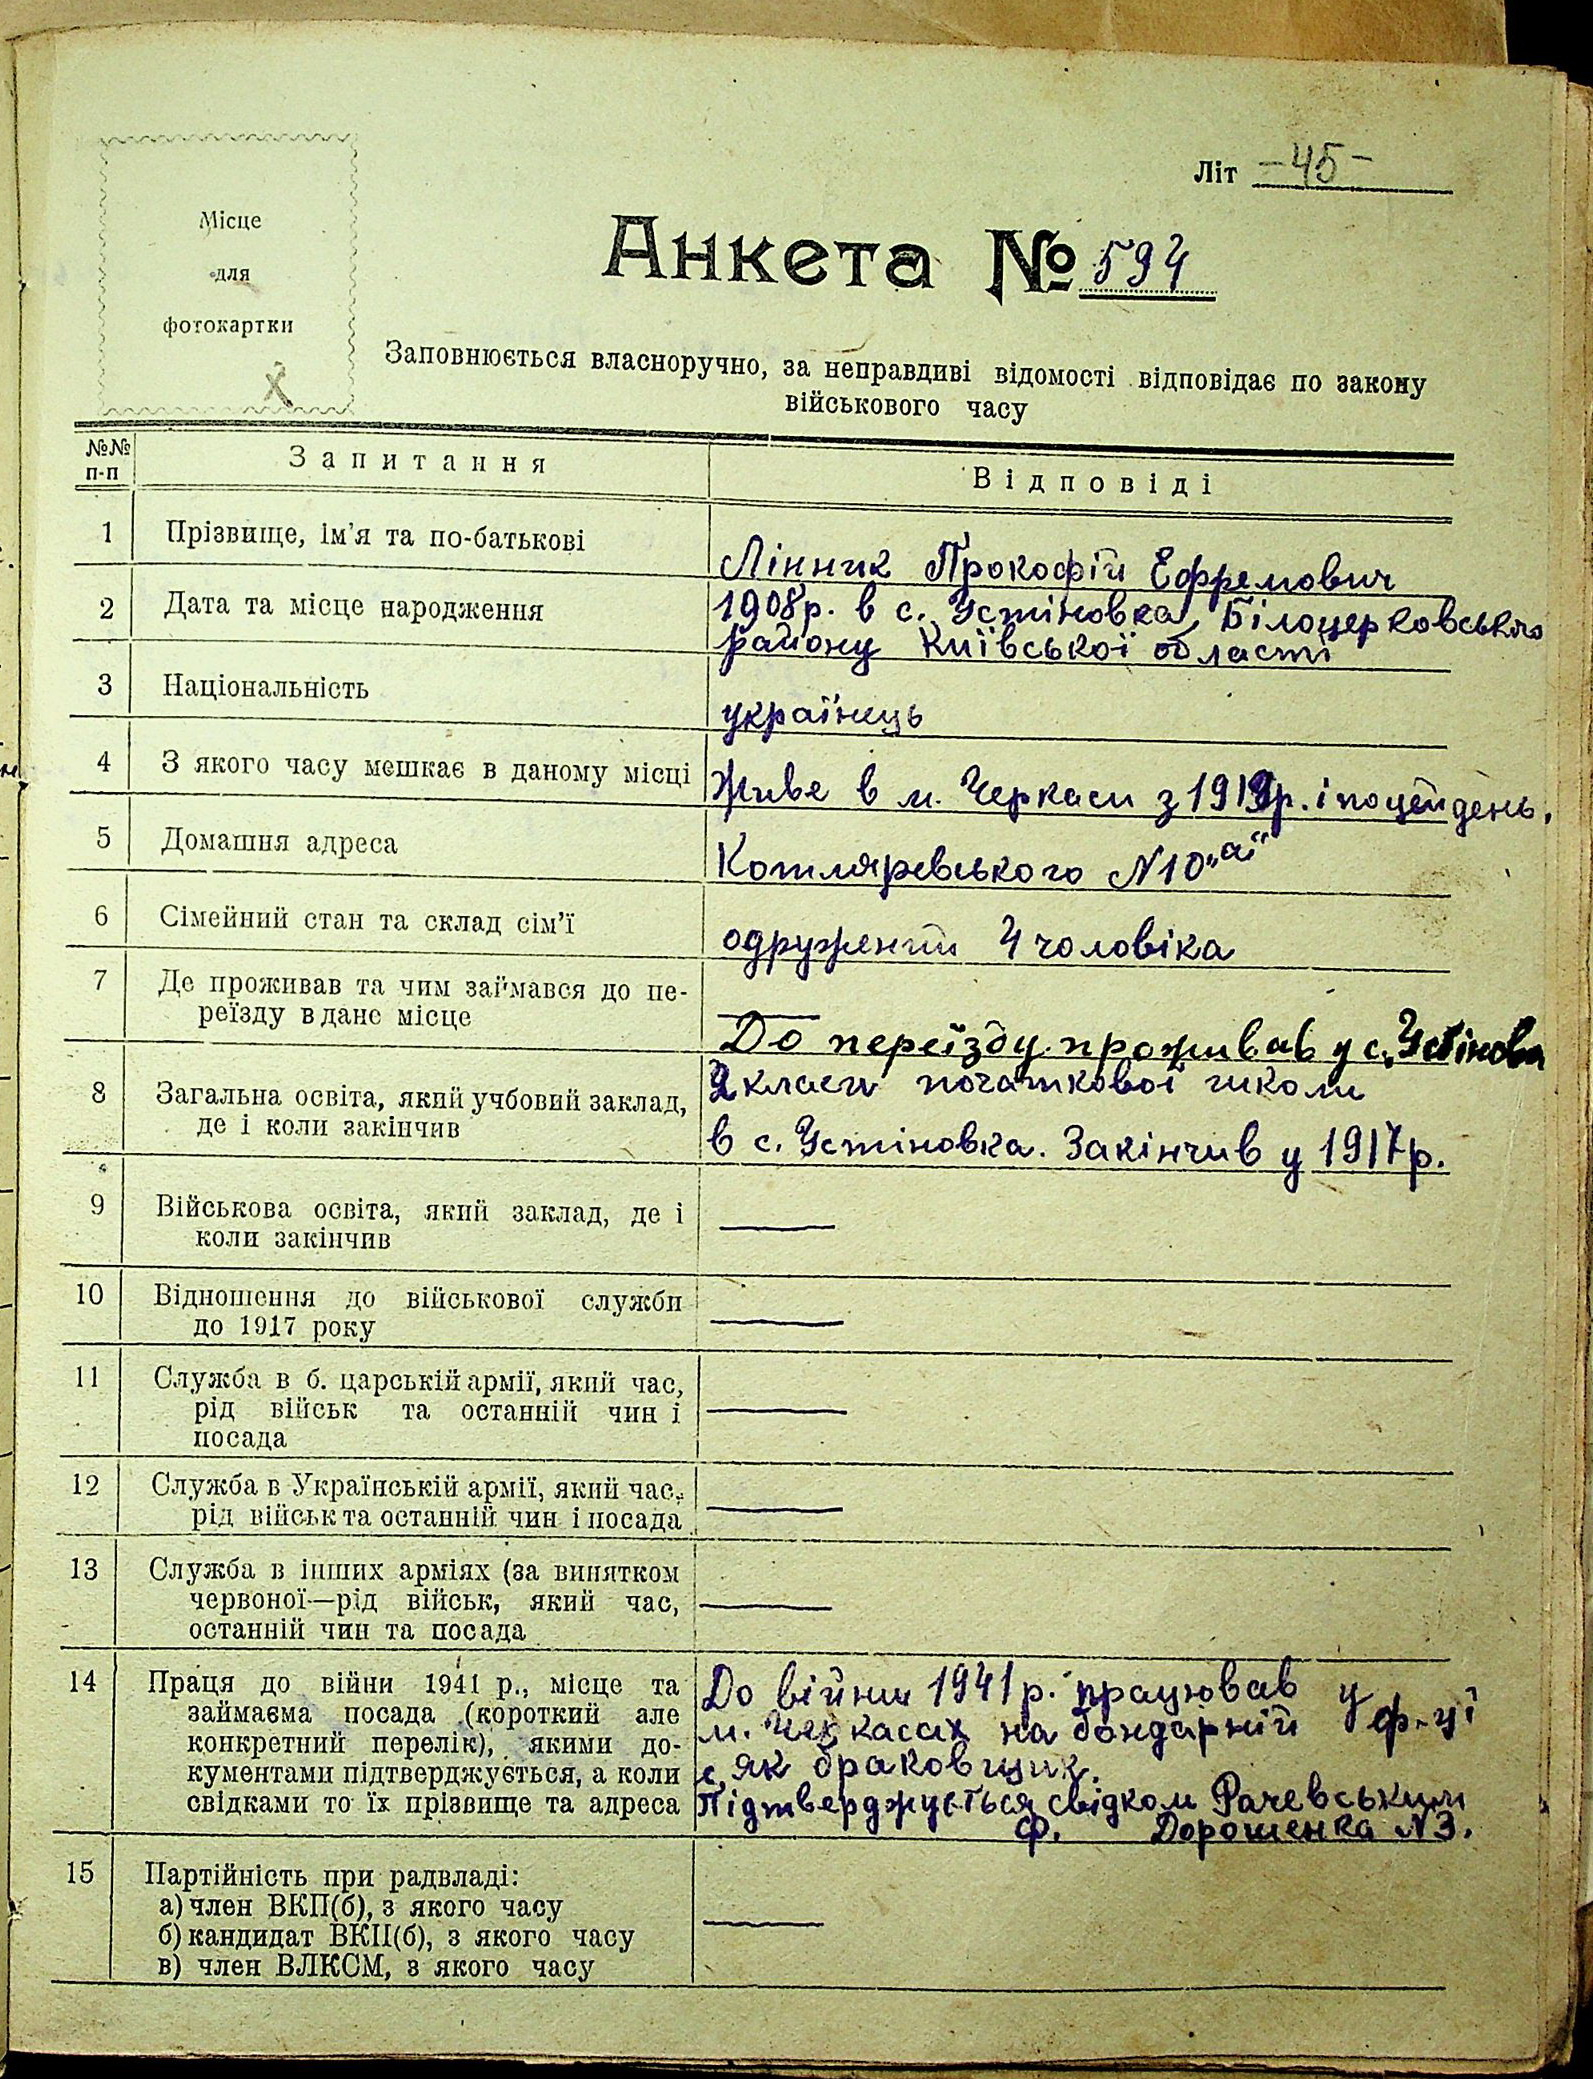 Літ -45-
Місце
для
фотокартки
х
Анкета № 594
Заповнюється власноручно, за неправдиві відомості відповідає по закону
військового часу
№№
п-п
Запитання
Відповіді
1
Прізвище, ім'я та по-батькові
Лінник Прокофій Ефремович
2
Дата та місце народження
1908р. в с. Устіновка, Білоцерковсько
району Київської області
3
Національність
українець
4
З якого часу мешкає в даному місці
Живе в м. Черкаси з 1919р. і поцей день.
5
Домашня адреса
Котляревського N10 „а"
6
Сімейний стан та склад сім'ї
одружений 4 чоловіка
7
Де проживав та чим займався до пе-
реїзду в дане місце
До переїзду проживав у с. Устінова
8
Загальна освіта, який учбовий заклад,
де і коли закінчив
2 класи початкової школи
в с. Устіновка. Закінчив у 1917р.
9
Військова освіта, який заклад, де і
коли закінчив
10
Відношення до військової служби
до 1917 року
11
Служба в б. царській армії, який час,
рід військ та останній чин і
посада
12
Служба в Українській армії, який час,
рід військ та останній чин і посада
13
Служба в інших арміях (за винятком
червоної—рід військ, який час,
останній чин та посада
14
Праця до війни 1941 р., місце та
займаєма посада (короткий але
конкретний перелік), якими до-
кументами підтверджується, а коли
свідками то їх прізвище та адреса
До війни 1941р. працював у
м. Черкасах на бондарній ф-ці
як браковщик.
Підтверджується свідком Рачевським
Ф. Дорошенка N3.
15
Партійність при радвладі:
а) член ВКП(б), з якого часу
б) кандидат ВКП(б), з якого часу
в) член ВЛКСМ, з якого часу